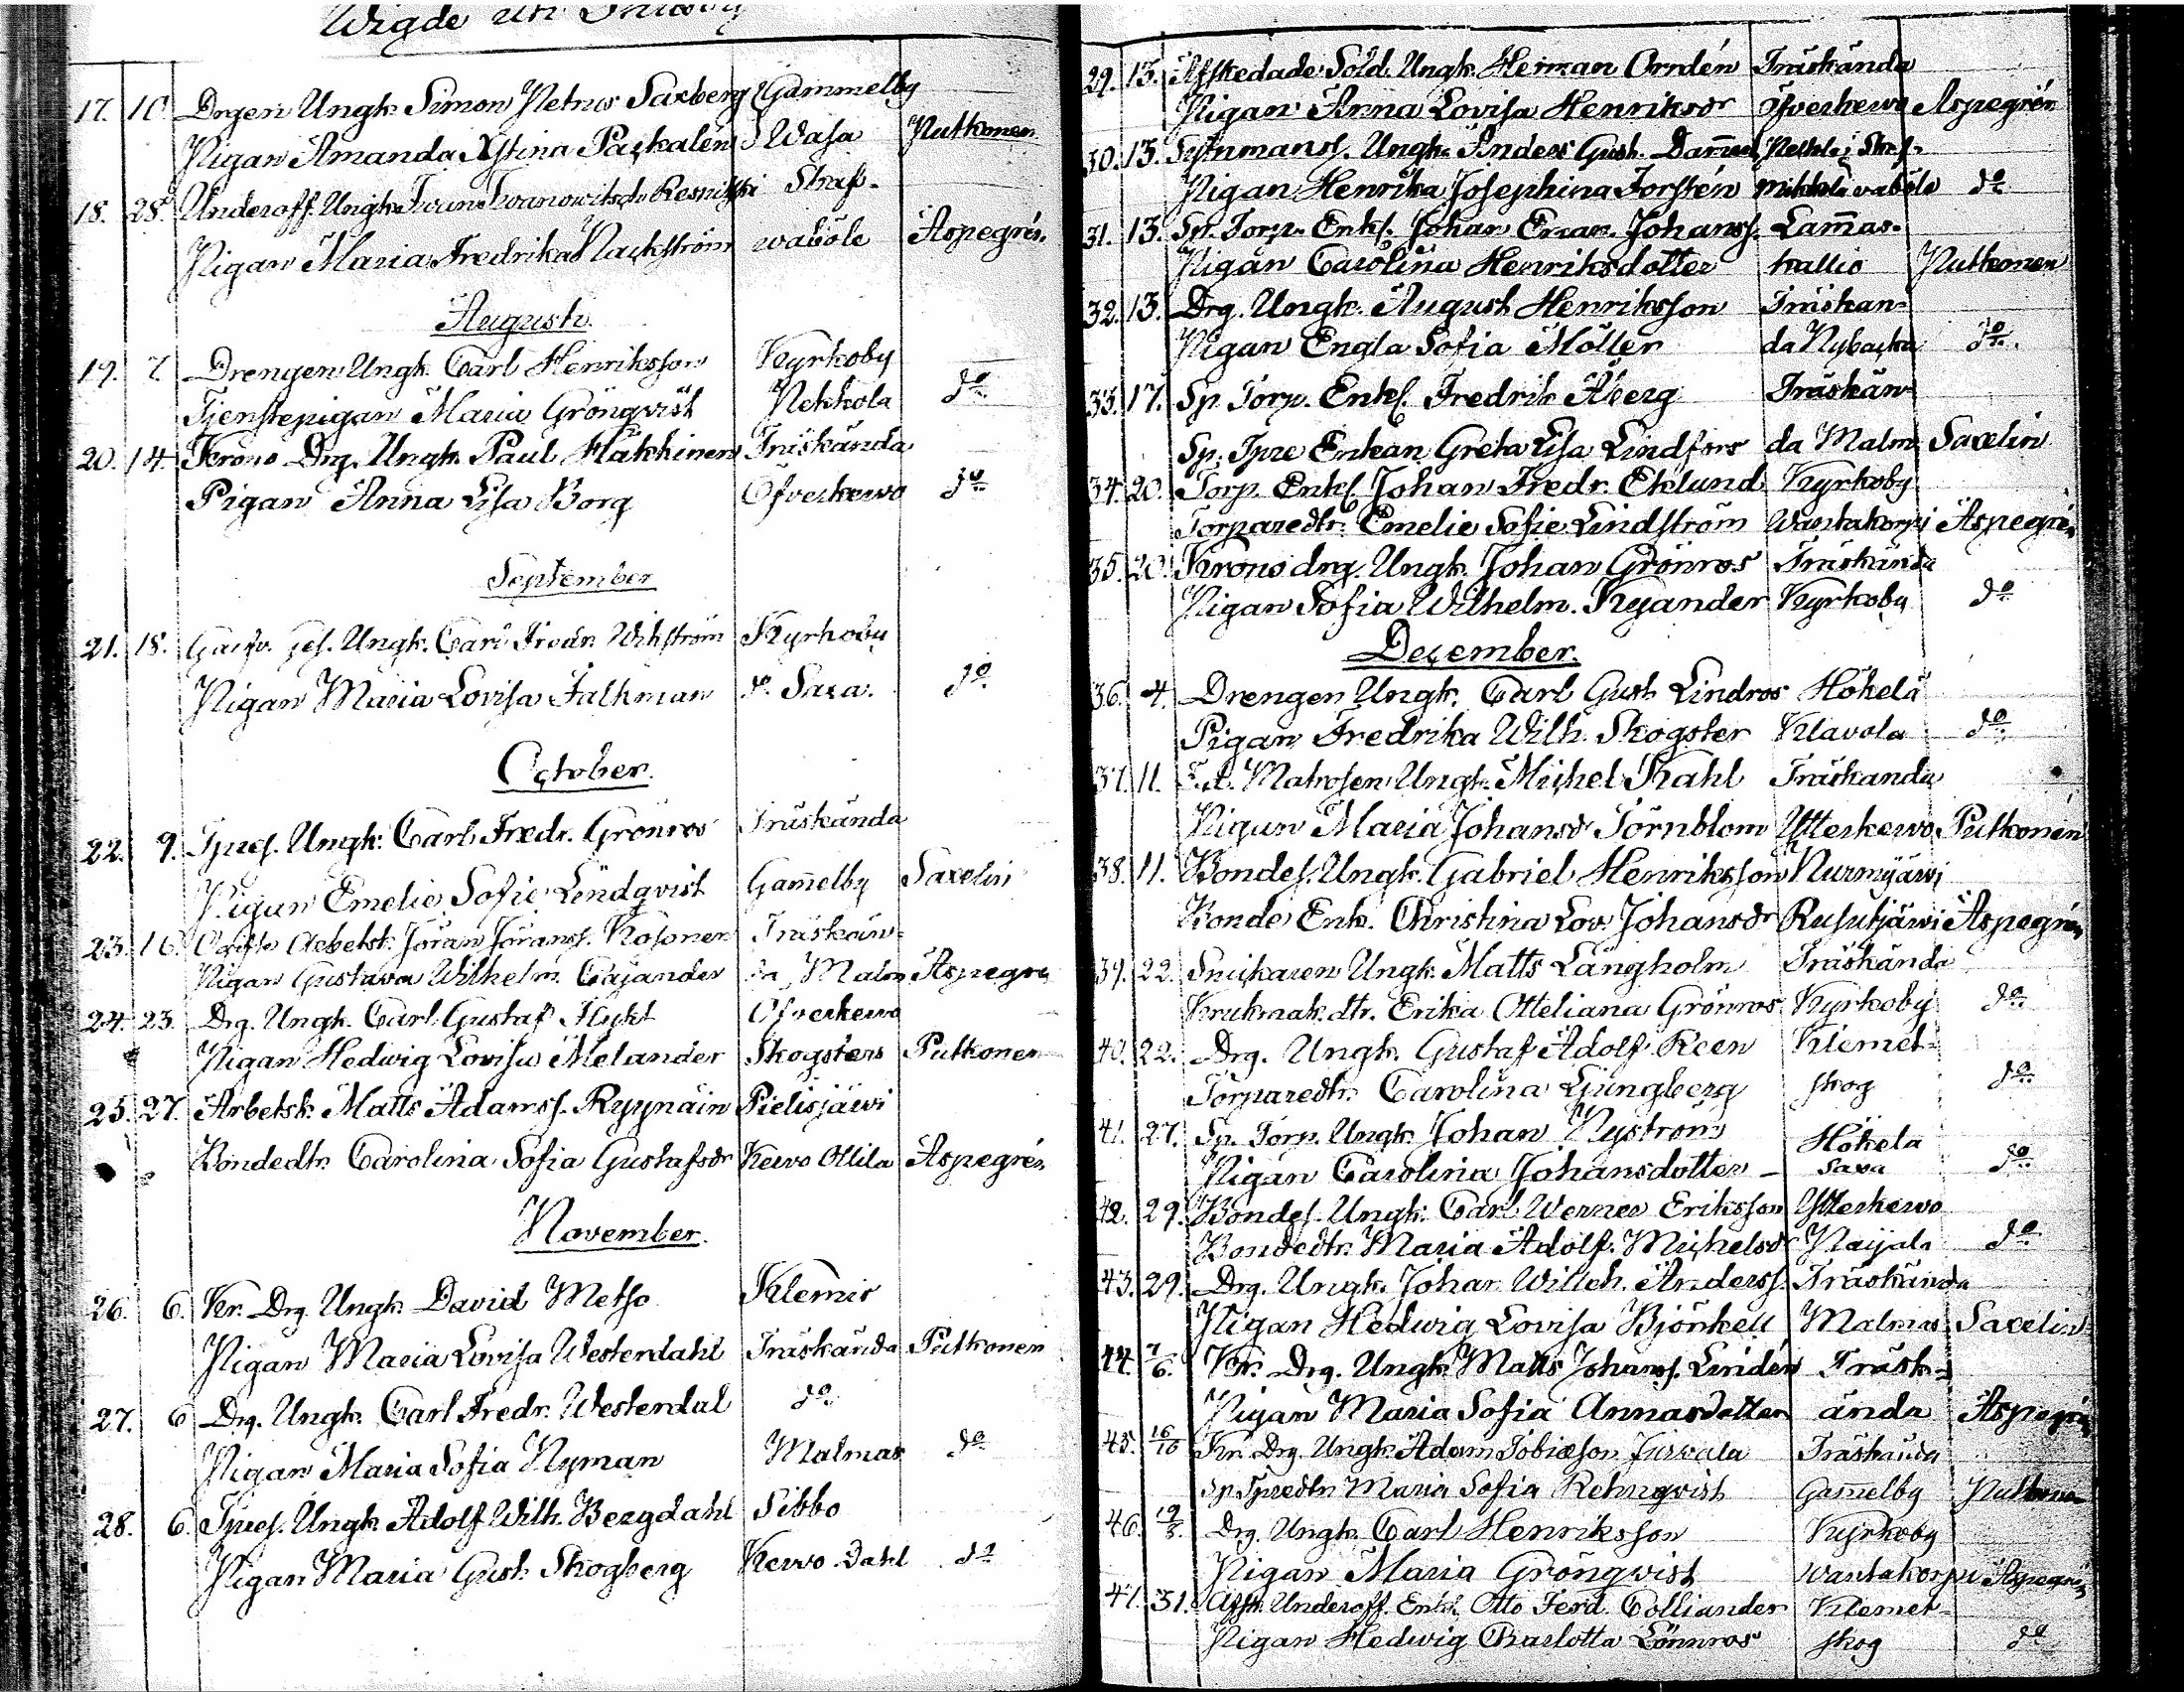 Wigde uti
17. 10. Drgen Ungk. Simon Petrus Saxberg Gammelby
Pigan Amanda Xstina Paskalén Wasa Putkonen
18. 28. Underoff. Ungk. Iwan Iwanowitsch Straf-
Pigan Maria Fredrika Nackström waböle Aspegrén.
Augusti.
19. 7. Drengen Ungk. Carl Henriksson Kyrkoby
Tjenstepigan Maria Grönqvist Pekkola do
20. 14. Krono Drg. Ungk. Paul Häkkinen Träskända
Pigan Anna Lisa Borg Öfverkervo do
September
21. 18. Garfv. Ges. Ungk. Carl Fredr. Wikström Kyrkoby
Pigan Maria Lovisa Falkman Saxa. do
October.
22. 9. Tpres. Ungk. Carl Fredr. Grönros Träskända
Pigan Emelie Sofie Lindqvist Gam̄elby Saxelin
23. 16. Arbetsk. Jöran Jöranss. Kosonen Träskän-
Pigan Gustava Wilhelm. Cajander da Malm Aspegrén
24. 23. Drg. Ungk. Carl Gustaf Flykt Öfverkervo
Pigan Hedwig Lovisa Melander Skogsters Putkonen
25. 27. Arbetsk. Matts Adamss. Ryynäin Pielisjärvi
Bondedtr. Carolina Sofia Gustafsdr Kervo Ollila Aspegrén
November.
26. 6. Kr. Drg. Ungk. David Metso Klemis
Pigan Maria Lovisa Westerdahl Träskända Putkonen
27. 6 Drg. Ungk. Carl Fredr. Westerdal do
Pigan Maria Sofia Nyman Malmas do
28. 6. Tpres. Ungk. Adolf Wilh. Bergdahl Sibbo
Pigan Maria Gust. Skogberg Kervo Dahl do
29. 13. Afskedade Sold. Ungk. Herman Orndén Träskända
Pigan Anna Lovisa Henriksdr Öfverkervo Aspegrén
30. 13. Ungk. Anders Gust. Pekkola, Straf-
Pigan Henrika Josephina Forstén Mikkola waböle do
31. 13. Sp. Torp. Enkl. Johan Eman. Johanss. Lam̄as-
Pigan Carolina Henriksdotter kallio Putkonen
32. 13. Drg. Ungk. August Henriksson Träskän-
Pigan Engla Sofia Möller da Nybacka do.
33. 17. Sp. Torp. Enkl. Fredrik Åberg Träskän-
Sp. Tpre Enkan Greta Lisa Lindfors da Malm Saxelin
34. 20. Torp. Enkl. Johan Fredr. Eklund Kyrkoby
Torparedtr. Emelie Sofie Lindström Wantakorpi Aspegrén
35. 20. Krono drg. Ungk. Johan Grönros Träskända
Pigan Sofia Wilhelm. Kyander Kyrkoby do
December.
36. 4. Drengen Ungk. Carl Gust. Lindros Hökelä
Pigan Fredrika Wilh. Skogster Klavola do
37. 11. Matrosen Ungk. Michel Stahl Träskända
Pigan Maria Johansdr Törnblom Ytterkervo Putkonen
38. 11. Bondes. Ungk. Gabriel Henriksson Nurmijärvi
Bonde Enk. Christina Lov. Johansdr Rusutjärvi Aspegrén
39. 22. Snickaren Ungk. Matts Långholm Träskända
Krukmak. dtr. Erika Otteliana Grönros Kyrkoby do
40. 22. Drg. Ungk. Gustaf Adolf Reen Klemet-
Torparedtr. Carolina Ljungberg skog do
41. 27. Sp. Torp. Ungk. Johan Nyström Hökela
Pigan Carolina Johansdotter - Saxa do
42. 29. Bondes. Ungk. Carl Werner Eriksson Ytterkervo
Bondedtr. Maria Adolf. Michelsdr Paijala do
43. 29. Drg. Ungk. Johan Willeh. Anderss. Träskända
Pigan Hedwig Lovisa Björkell Malmas Saxelin
44. 7/6. Kr. Drg. Ungk. Matts Johanss. Lindén Träsk-
Pigan Maria Sofia Annasdotter ända Aspegrén
45. 16/10 Kr. Drg. Ungk. Adam Tobiasson Jurvala Träskända
Sp. Tpredtr. Maria Sofia Rehnqvist Gam̄elby Putkonen
46. 19/3. Drg. Ungk. Carl Henriksson Kyrkoby
Pigan Maria Grönqvist Wantakorpi Aspegrén
47. 31. Afsk. Underoff. Enkl. Otto Ferd. Colliander Klemet-
Pigan Hedwig Charlotta Lönnros skog do